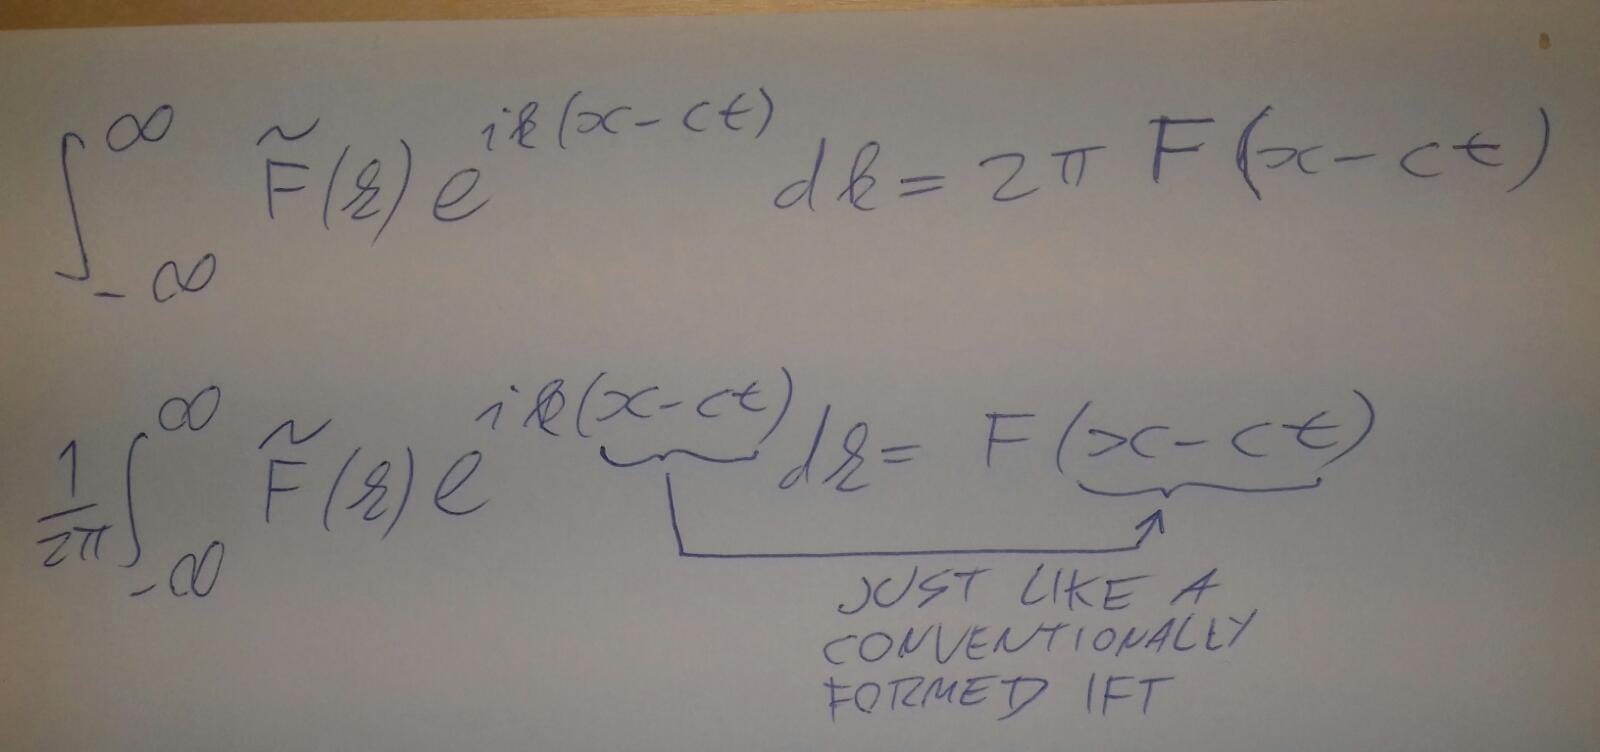 ∫_{-∞}^{∞} F̃(k) e^{ik(x-ct)} dk = 2π F(x-ct)
1/2π ∫_{-∞}^{∞} F̃(k) e^{ik(x-ct)} dk = F(x-ct)
JUST LIKE A
CONVENTIONALLY
FORMED IFT